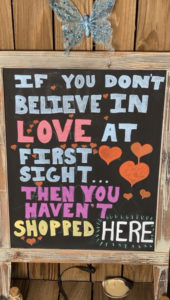 IF YOU DON'T
BELIEVE IN
LOVE AT
FIRST
SIGHT...
THEN YOU
HAVEN'T
SHOPPED HERE